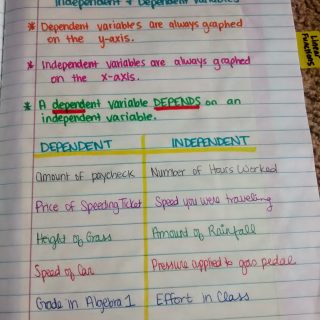 Independent & Dependent Variables
* Dependent variables are always graphed
on the y-axis.
* Independent variables are always graphed
on the x-axis.
* A dependent variable DEPENDS on an
independent variable.
DEPENDENT INDEPENDENT
Amount of paycheck Number of Hours Worked
Price of Speeding Ticket Speed you were traveling
Height of Grass Amount of Rainfall
Speed of Car Pressure applied to gas pedal
Grade in Algebra 1 Effort in Class
Linear
Functions